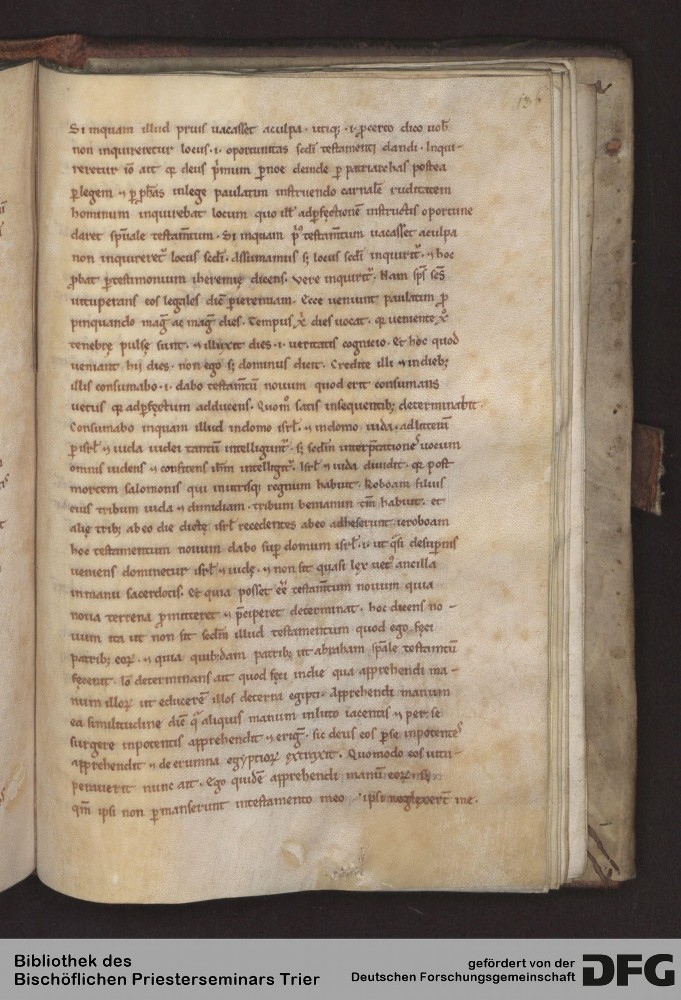 136
Si inquam illud prius uacasset aculpa · utiq; · i · ꝓcerto dico uob̄
non inquireretur locus · i · oportunitas scd̄i testamenti dandi · Inqui-
reretur iō ait qꝛ deus p̄mum ꝑnoe deinde ꝑ patriarchas postea
ꝑlegem ⁊ ꝑ ꝓph̄as inlege paulatim instruendo carnalē ruditatem
hominum inquirebat locum quo ill̄ adꝑfectionē instructis oportune
daret sp̄uale testam̄tum · Si inquam p̄ testam̄tum uacasset aculpa
non inquireret᷑ locus scd̄i · Assumamus s; locus scd̄i inquirit᷑ · ⁊ hoc
ꝓbat ꝑtestimonium iheremię dicens · Vere inquirit᷑ · Nam sp̄s sc̄s
uituperans eos legales dic̄ ꝑieremiam · Ecce ueniunt paulatim ꝓ
pinquando mag̅ ac mag̅ dies · Tempus x̄ dies uocat · qꝛ ueniente x̄
tenebrę pulsę sunt · ⁊ illuxit dies · i · ueritatis cognicio · Et hoc quod
ueniant hii dies · non ego s; dominus dicit · Credite illi ⁊ indieb;
illis consumabo · i · dabo testam̄tū nouum quod erit consumans
uetus qꝛ adꝑfectum adducens · Quom̊ satis insequentib; determinabit ·
Consumabo inquam illud indomo isrl̄ · ⁊ indomo iuda · adlitterā
ꝑ isrl̄ ⁊ iuda iudei tantū intelligunt᷑ · s; scd̄m interp̄tationē uocum
omnis uidens ⁊ confitens ih̄m intelligit᷑ · Isrl̄ ⁊ iuda diuidit · qꝛ post
mortem salomonis qui utrisq; regnum habuit · Roboam filius
eius tribum iuda ⁊ dimidiam · tribum beniamin tm̄ habuit · et
alię trib; abeo die dictę isrl̄ recedentes abeo adheserunt ieroboam
hoc testamentum nouum dabo suꝑ domum isrl̄ · i · ut q̄si desuꝑnis
ueniens dominetur isrl̄ ⁊ iudę · ⁊ non sit quasi lex uet᷒ ancilla
inmanu sacerdotis · Et quia posset ee̅ testam̄tum nouum quia
noua terrena ꝓmitteret ⁊ p̄ciperet determinat · hoc dicens no -
uum ita ut non sit scd̄m illud testamentum quod ego feci
patrib; eoꝝ · ⁊ quia quib;dam patrib; ut abraham sp̄ale testam̄tū
fecerat · Iō determinans ait quod feci indie qua apprehendi ma -
num illoꝝ ut educerē illos deterra egipti · Apprehendi manum
ea similitudine dic̄ q̄ aliquis manum inluto iacentis ⁊ per se
surgere inpotentis apprehendit ⁊ erig̅ · sic deus eos ꝑse inpotentes
apprehendit ⁊ de erumna egyptioꝝ extraxit · Quomodo eos uitu -
perauerit nunc ait · Ego quidē apprehendi manū eoꝝ · s;
qm̄ ipsi non ꝑmanserunt intestamento meo · ipsi neglexerūt me ·
Bibliothek des
Bischöflichen Priesterseminars Trier
gefördert von der
Deutschen Forschungsgemeinschaft
DFG